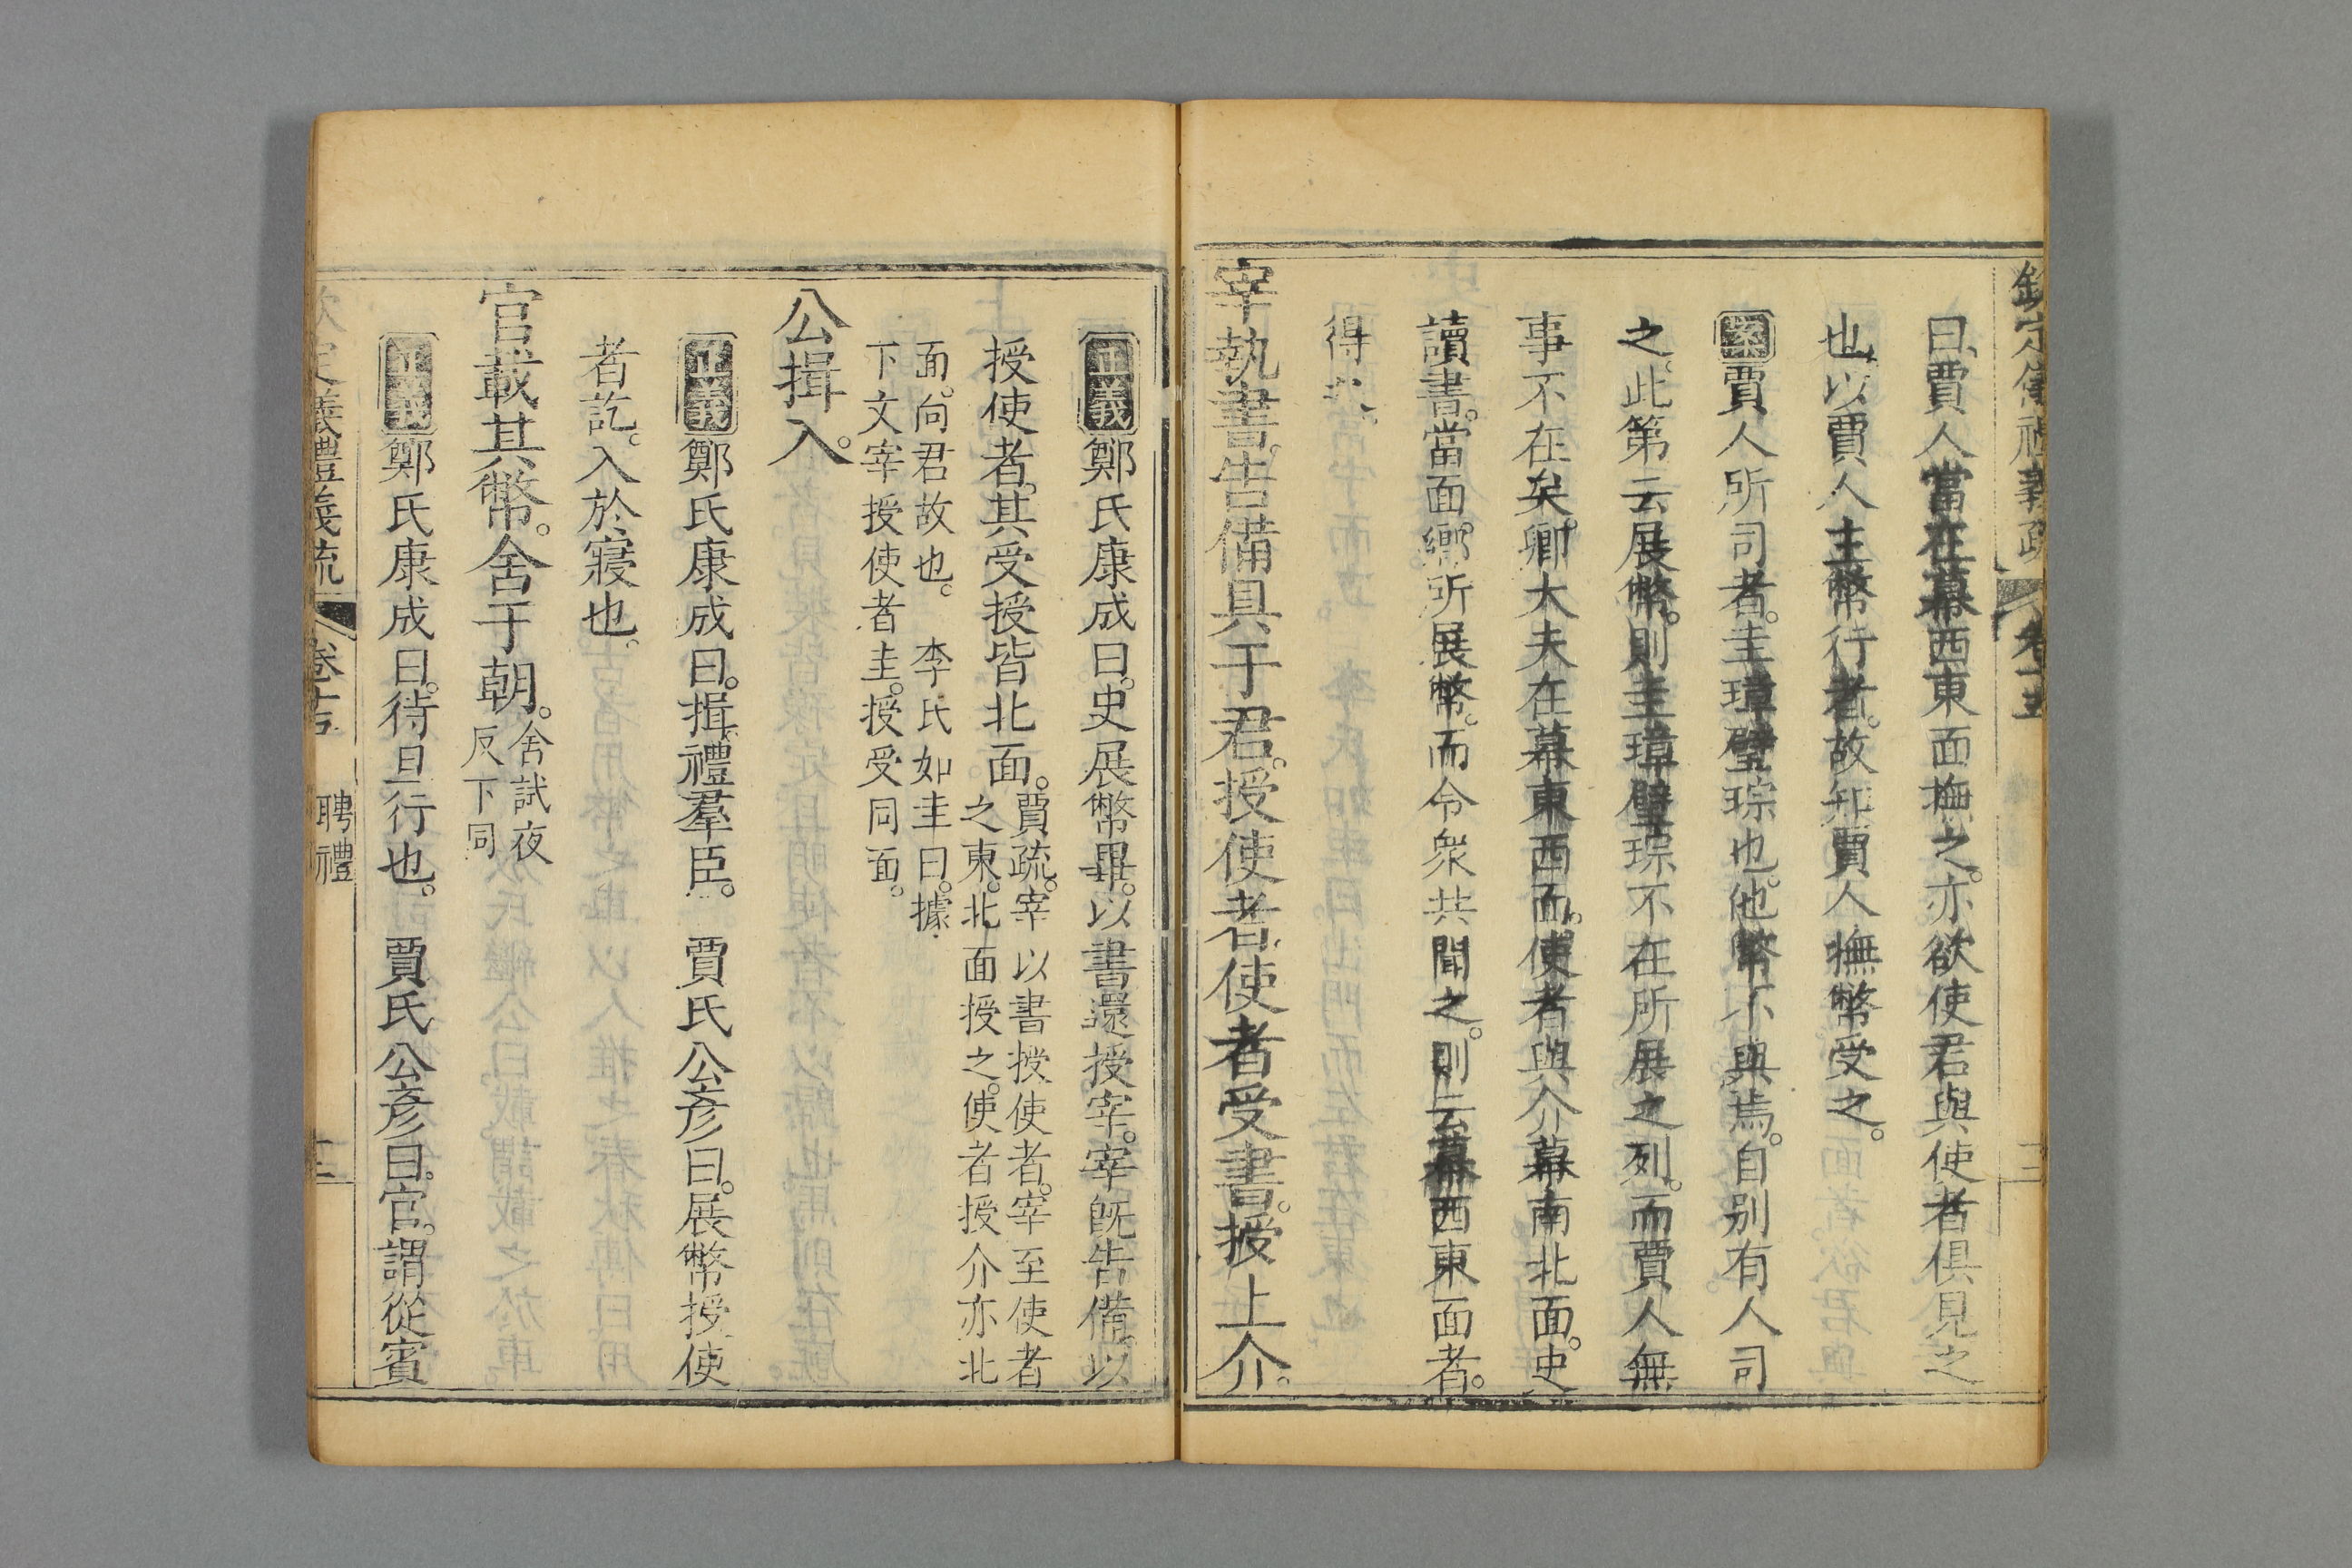 欽定儀禮義疏 卷十五 三
曰賈人當在幕西東面撫之。亦欲使君與使者俱見之
也。以賈人主幣行者。故知賈人撫幣受之。
案賈人所司者。圭璋璧琮也。他幣不與焉。自別有人司
之。此第云展幣。則圭璋璧琮不在所展之列。而賈人無
事不在矣。卿大夫在幕東西面。使者與介幕南北面。史
讀書。當面鄉所展幣。而令衆共聞之。則云幕西東面者。
得之。
宰執書。告備具于君。授使者。使者受書。授上介。
正義鄭氏康成曰。史展幣畢。以書還授宰。宰旣告備。以
授使者。其受授皆北面。賈疏。宰以書授使者。宰至使者
之東。北面授之。使者授介亦北
面。向君故也。 李氏如圭曰。據
下文宰授使者圭。授受同面。
公揖入。
正義鄭氏康成曰。揖。禮羣臣。 賈氏公彥曰。展幣授使
者訖。入於寢也。
官載其幣。舍于朝。舍試夜
反下同
正義鄭氏康成曰。待旦行也。 賈氏公彥曰。官。謂從賓
欽定儀禮義疏 卷十五 聘禮 十三